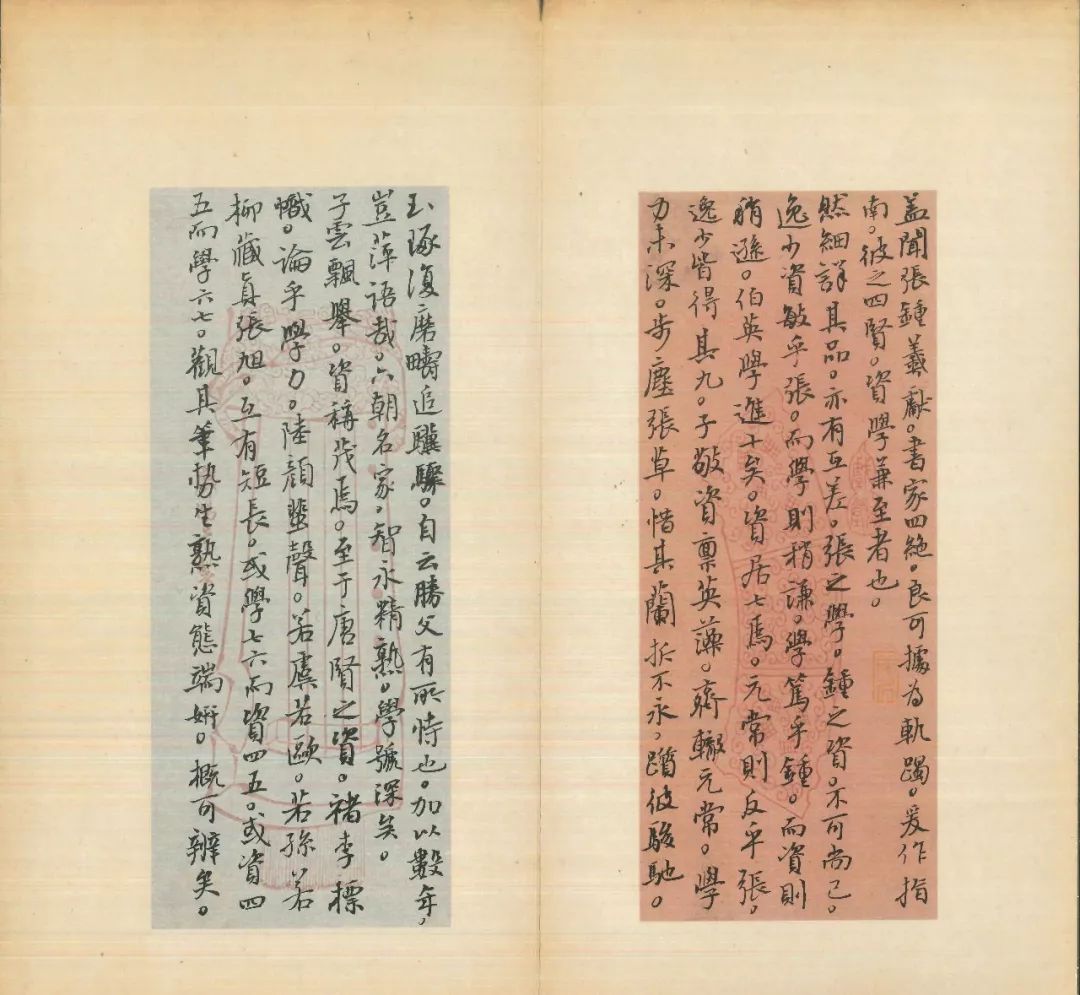 蓋聞張鍾羲獻。書家四絶。良可據為軌躅。爰作指
南。彼之四賢。資學兼至者也。
然細詳其品。亦有互差。張之學。鍾之資。不可尚已。
逸少資敏乎張。而學則稍謙。學篤乎鍾。而資則
稍遜。伯英學進十矣。資居七焉。元常則反乎張。
逸少皆得其九。子敬資稟英藻。齊轍元常。學
力未深。步塵張草。惜其蘭折不永。躓彼駿馳。
玉琢復磨。疇追驥騄。自云勝父有所恃也。加以數年。
豈萍語哉。六朝名家。智永精熟。學號深矣。
子雲飄舉。資稱茂焉。至于唐賢之資。褚李標
幟。論乎學力。陸顔蜚聲。若虞若歐。若孫若
柳。藏真張旭。互有短長。或學七六而資四五。或資四
五而學六七。觀其筆勢生熟。資態端妍。概可辨矣。